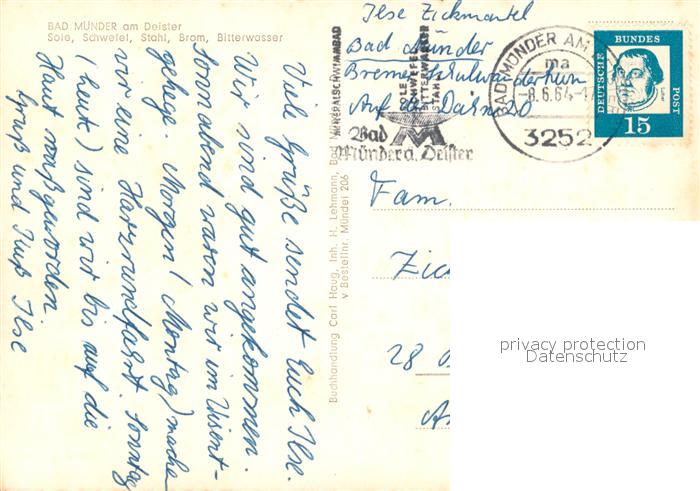 BAD MÜNDER am Deister
Sole, Schwefel, Stahl, Brom, Bitterwasser
Viele Grüße sendet Euch Ilse.
Wir sind gut angekommen.
Sonnabend waren wir im Wisent-
gehege. Morgen (Montag) machen
wir eine Harzrundfahrt. Sonntag
(heute) sind wir bis auf die
Haut naßgeworden
Gruß und Kuß Ilse
Buchhandlung Carl Haug, Inh. H. Lehmann, Bad
v Bestellnr. Mündel 206
Ilse Zickmantel
Bad Münder
Bremer Schulwanderheim
Auf der Dahm 20
MINERALSCHWIMMBAD
SOLE
SCHWEFEL
BITTERWASSER
STAHL
Bad
Münder a. Deister
BAD MÜNDER AM
ma
-8.6.64-
3252
DEUTSCHE
BUNDES
POST
15
Fam.
Zic
28
privacy protection
Datenschutz